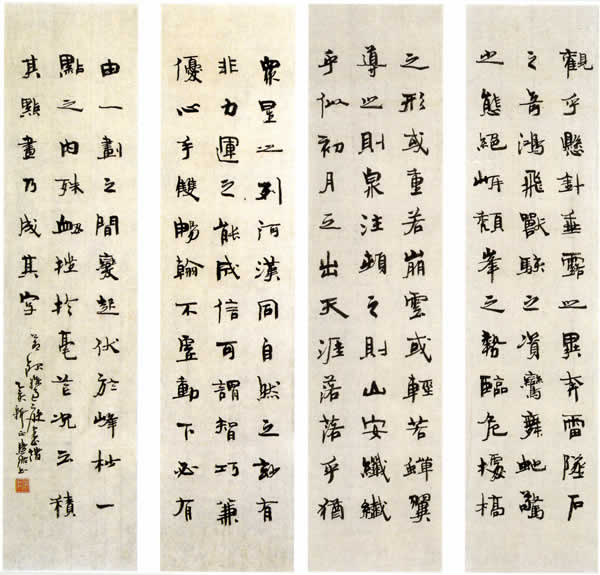 觀乎懸針垂露之異奔雷墜石
之奇鴻飛獸駭之資鸞舞蛇驚
之態絕岸頹峯之勢臨危據槁
之形或重若崩雲或輕若蟬翼
導之則泉注頓之則山安纖纖
乎似初月之出天涯落落乎猶
眾星之列河漢同自然之妙有
非力運之能成信可謂智巧兼
優心手雙暢翰不虛動下必有
由一劃之間變起伏於峰杪一
點之内殊衄挫於毫芒況云積
其點畫乃成其字